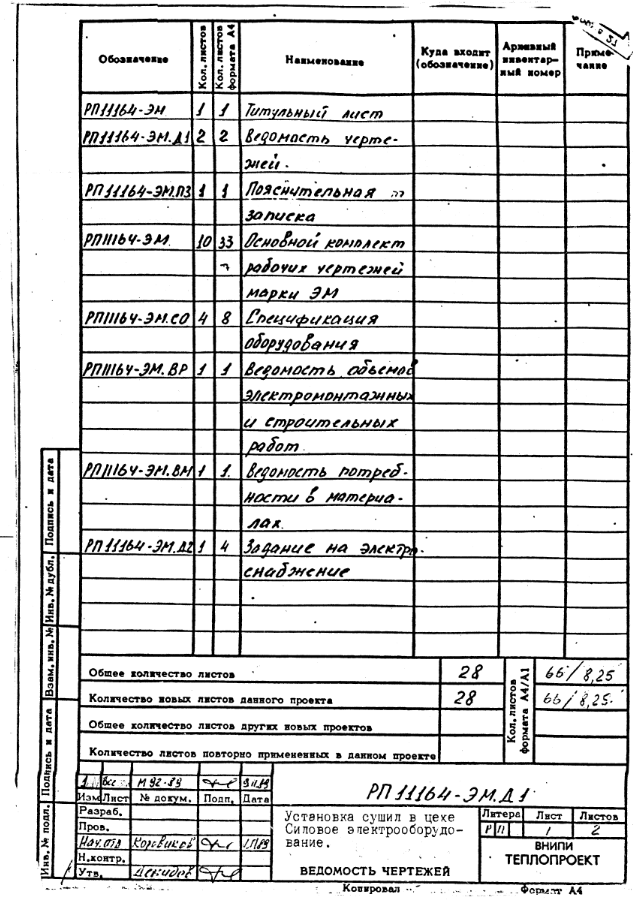 Обозначение
Кол. листов
Кол. листов формата А4
Наименование
Куда входит (обозначение)
Архивный инвентарный номер
Примечание
РП11164-ЭМ 1 1 Титульный лист
РП11164-ЭМ.Д1 2 2 Ведомость черте-
жей.
РП11164-ЭМ.ПЗ 1 1 Пояснительная
записка
РП11164-ЭМ. 10 33 Основной комплект
рабочих чертежей
марки ЭМ
РП11164-ЭМ.СО 4 8 Спецификация
оборудования
РП11164-ЭМ.ВР 1 1 Ведомость объемов
электромонтажных
и строительных
работ
РП11164-ЭМ.ВМ 1 1 Ведомость потреб-
ности в материа-
лах
РП11164-ЭМ.Д2 1 4 Задание на электро-
снабжение
Общее количество листов 28
Количество новых листов данного проекта 28
Общее количество листов других новых проектов
Количество листов повторно примененных в данном проекте
Кол. листов формата А4/А1
66/8,25
66/8,25
Подпись и дата
Инв. № дубл.
Взам. инв. №
Подпись и дата
Инв. № подл.
1 Все М92-89
Изм Лист № докум. Подп. Дата
Разраб.
Пров.
Нач. отд Коровиков
Н.контр.
Утв. Демидов
РП11164-ЭМ.Д1
Установка сушил в цехе
Силовое электрооборудо-
вание.
ВЕДОМОСТЬ ЧЕРТЕЖЕЙ
Литера Лист Листов
РП 1 2
ВНИПИ
ТЕПЛОПРОЕКТ
Копировал
Формат А4